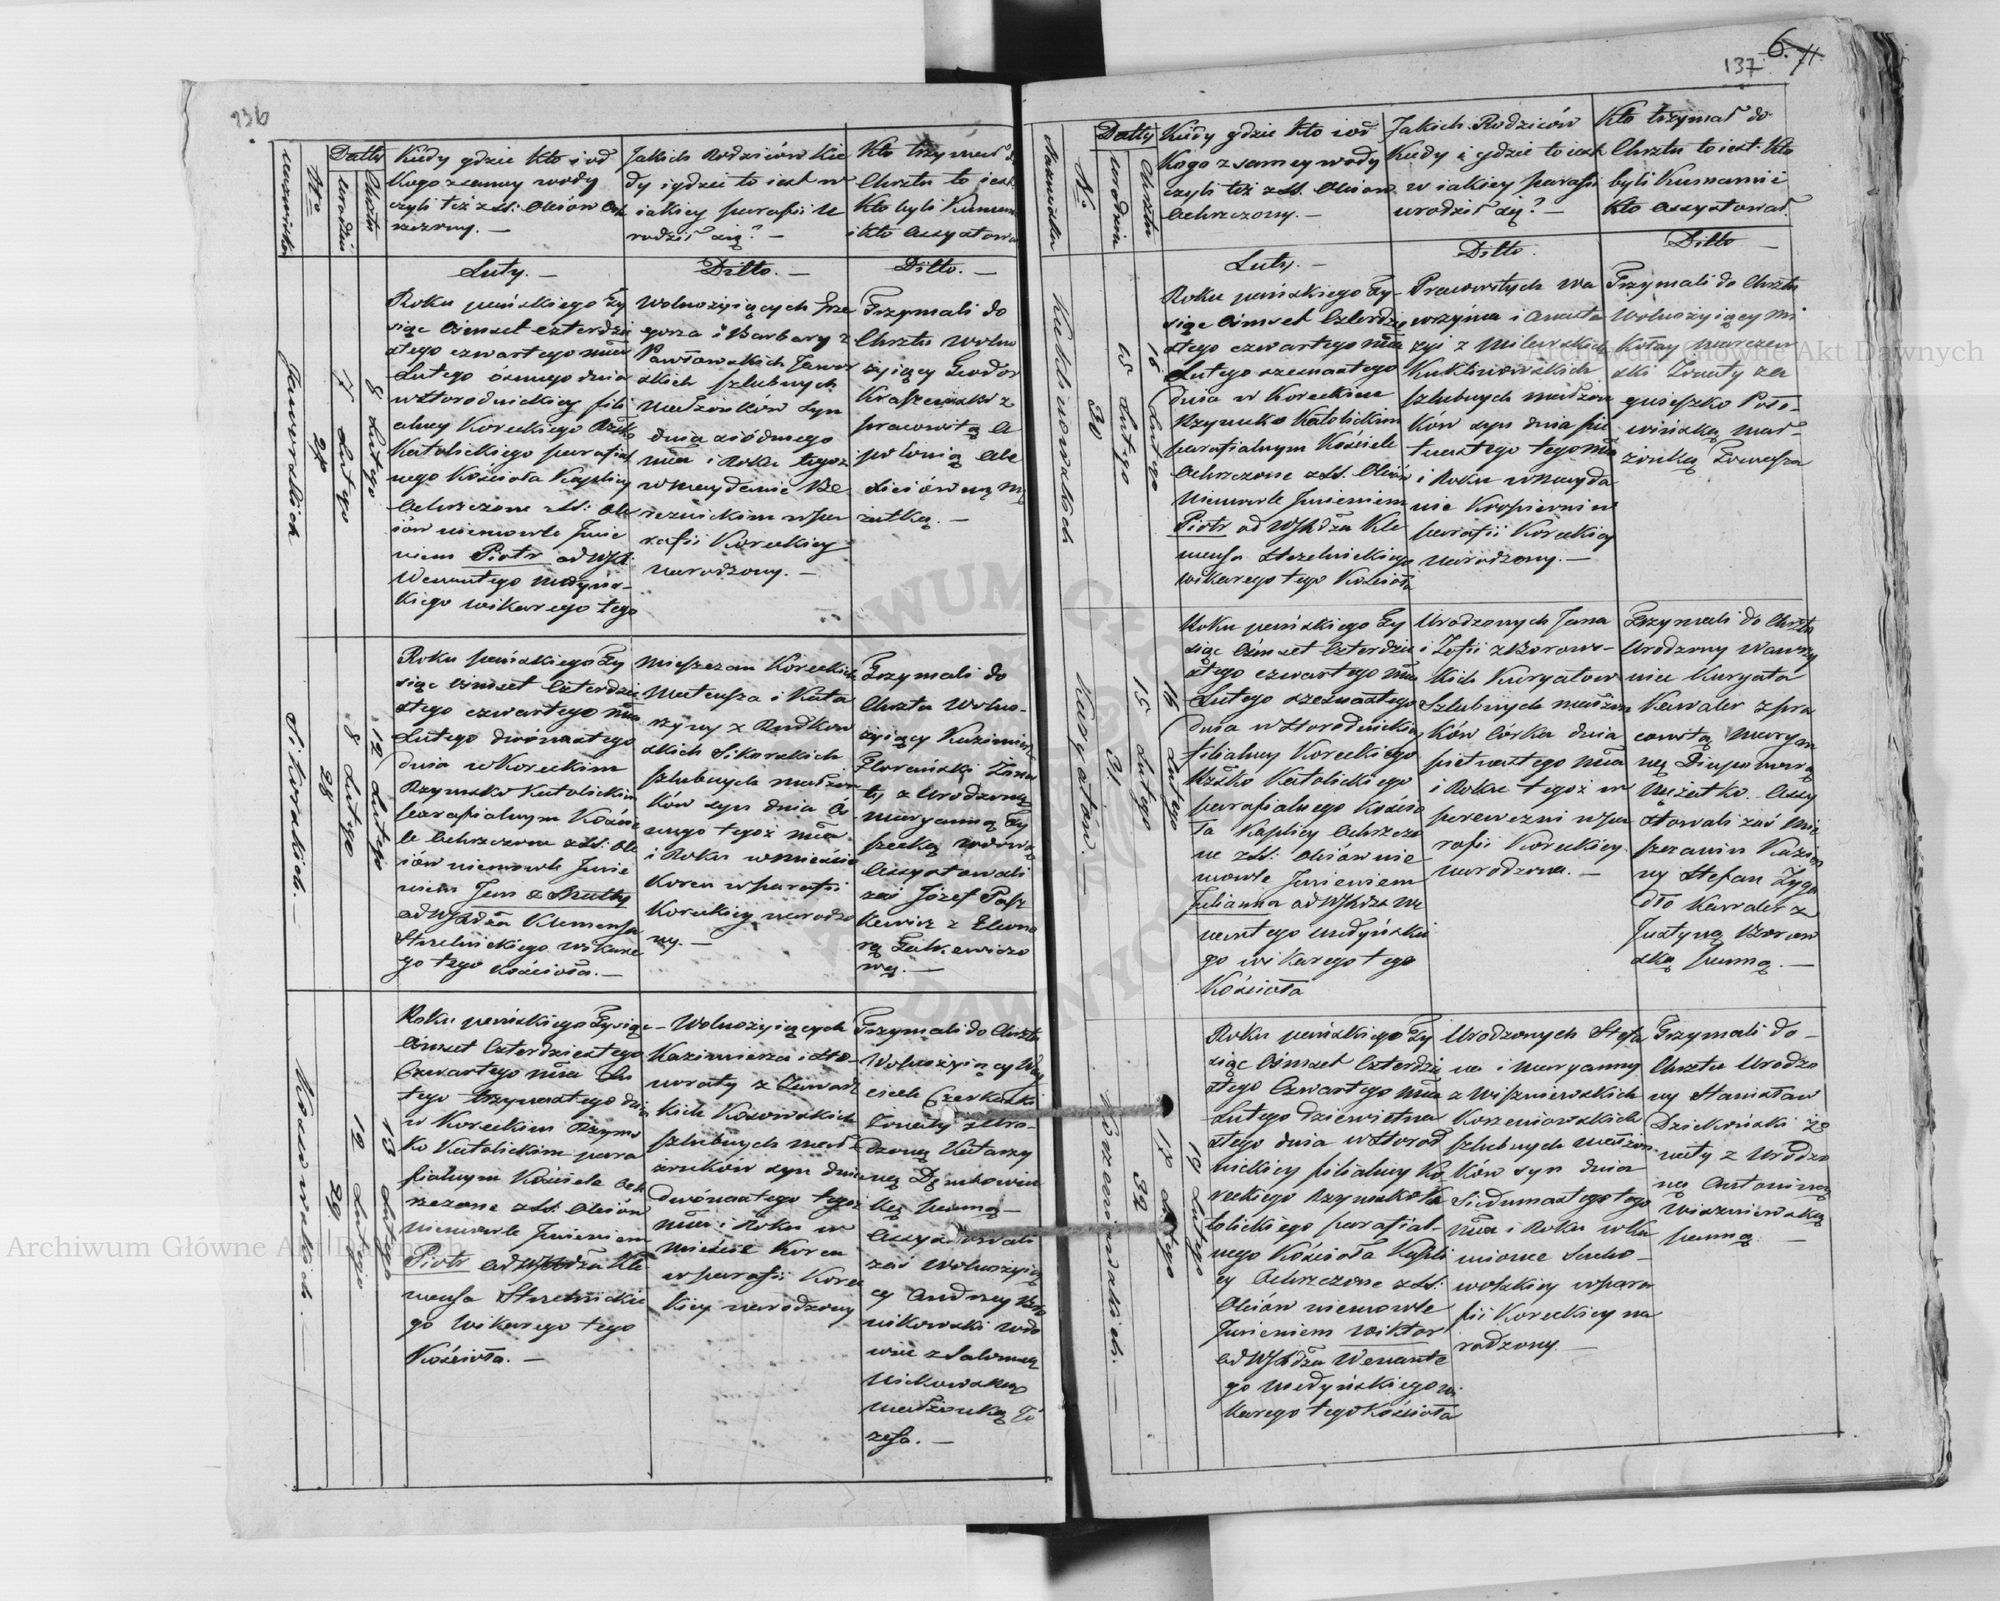 136
Nazwiska
Nro
Datty
urodzin
Chrztu
Kiedy gdzie Kto i od
Kogo z samey wody
czyli też z SS: Oleiow Och
rzczony. —
Jakich Rodziców Kie
dy i gdzie to iest w
iakiey parafii u
rodził się? —
Kto trzymał d
Chrztu to iest
Kto byli Kumami
i Kto Assystował
Jaworskich
27
7 Lutego
8 Lutego
Luty. —
Roku pańskiego Ty
siąc Ośmset czterdzie
stego czwartego mca
Lutego ósmego dnia
w Storodnickiey fili
alney Koreckiego Rzsko
Katolickiego parafial
nego Kościoła Kaplicy
Ochrzczone z SS: Ole
iów niemowle Imie
niem Piotr od WJX:
Wenantego Medyńs-
kiego wikarego tego
Ditto. —
Wolnożyiących Grze
gorza i Barbary z
Pawłowskich Jawor
skich szlubnych
małżonków syn
dnia siódmego
mca i Roku tegoż
w Maydanie Be
reznickim w pa
rafii Koreckiey
narodzony. —
Ditto. —
Trzymali do
Chrztu Wolno
żyiący Teodor
Kraszewski z
pracowitą A
polonią Ale
xiciówną mę
żatką. —
Sikorskich. —
28
8 Lutego
12 Lutego
Roku pańskiego Ty
siąc Ośmset Czterdzie
stego czwartego mca
Lutego dwónastego
dnia w Koreckim
Rzymsko Katolickim
parafialnym Koście
le Ochrzczone z SS: Ole
iów niemowle Imie
niem Jan z Matty
od WJXdza Klemensa
Strzelnickiego wikare
go tego Kościoła. —
Mieszczan Koreckich
Mateusza i Kata
rzyny z Rudkow
skich Sikorskich
szlubnych małżon
ków syn dnia Ós
mego tegoż mca
i Roku w mieście
Korcu w parafii
Koreckiey narodzo
ny. —
Trzymali do
Chrztu Wolno-
żyiący Kazimierz
Floryański Żona
ty z Urodzoną
Maryanną Ty
szecką wdową
Assystowali
zaś Józef Pasz
kewicz z Eleono
rą Falkewiczo
wą. —
Kossowskich. —
29
12 Lutego
13 Lutego
Roku pańskiego Tysiąc
Ośmset Czterdziestego
Czwartego mca Lu
tego trzynastego dnia
w Koreckim Rzyms
ko Katolickim para
fialnym Kościele Och
rzczone z SS: Oleiów
niemowle Imieniem
Piotr od WJXdza Kle
mensa Strzelnickie
go Wikarego tego
Kościoła. —
Wolnożyiących
Kazimierza i Ho-
noraty z Zawadz
kich Kosowskich
szlubnych mał
żonków syn dnia
dwónastego tegoż
mca i Roku w
mieście Korcu
w parafii Korec
kiey narodzony
Trzymali do Chrztu
Wolnożyiący Woy
ciech Czerkaski
Żonaty z Uro-
dzoną Katarzy
ną Dęmkowic
ką panną —
Assystowali
zaś Wolnożyią
cy Andrzey
nikowski wdo
wiec z Salomeą
Nickowską
małżonką Jó
zefa. —
137
6.
Nazwiska
No
Datty
urodzin
Chrztu
Kiedy gdzie Kto i od
Kogo z samey wody
czyli też z SS. Oleiow
Ochrzczony. —
Jakich Rodziców
Kiedy i gdzie to iest
w iakiey parafii
urodził się? —
Kto trzymał do
Chrztu to iest Kto
byli Kumami i
Kto Assystował
Kuklinowskich
30
15 Lutego
16 Lutego
Luty. —
Roku pańskiego Ty-
siąc Ośmset Czterdzie
stego czwartego mca
Lutego szesnastego
dnia w Koreckim
Rzymsko Katolickim
parafialnym Kościele
Ochrzczone z SS. Oleiów
Niemowle Imieniem
Piotr od WJXdza Kle
mensa Strzelnickiego
wikarego tego Kościoła
Ditto.
Pracowitych Wa
wrzyńca i Anasta
zyi z Milewskich
Kuklinowskich
szlubnych małżon
ków syn dnia pię
tnastego tego mca
i Roku w mayda
nie Kropiewni w
parafii Koreckiey
narodzony. —
Ditto —
Trzymali do Chrztu
Wolnożyiący Mi
kołay Marczew
ski Żonaty z A
gnieszką Poto-
wińską mał-
żonką Tomasza
Kuryatow. —
31
15 Lutego
16 Lutego
Roku pańskiego Ty
siąc Ośmset Czterdzie
stego czwartego mca
Lutego szesnastego
dnia w Storodnickiey
filialney Koreckiego
Rzsko Katolickiego
parafialnego Kościo
ła Kaplicy Ochrzczo
ne z SS: Oleiów nie
mowle Imieniem
Julianna od WJXdza We
nantego Medyńskie
go wikarego tego
Kościoła
Urodzonych Jana
i Zofii z Borows-
kich Kuryatow
Szlubnych małżon
ków Córka dnia
piętnastego mca
i Roku tegoż w
perewezni w pa
rafii Koreckiey
narodzona. —
Trzymali do Chrztu
Urodzony Wawrzy
niec Kuryata
Kawaler z pra
cowitą Maryan
ną Diapowarą
Mężatką. Assy
stowali zaś Mie
szczanin Kazim
ny Stefan Zyga
dło Kawaler z
Justyną Borow
ską panną. —
Korzeniowskich. —
32
17 Lutego
19 Lutego
Roku pańskiego Ty
siąc Ośmset Czterdzie
stego Czwartego mca
Lutego dziewiętna
stego dnia w Storod
nickiey filialney Ko
reckiego Rzymsko Ka
tolickiego parafial-
nego Kościoła Kapli
cy Ochrzczone z SS:
Oleiów niemowle
Imieniem Wiktor
od WJXdza Wenante
go Medyńskiego wi
karego tego Kościoła
Urodzonych Stefa
na i Maryanny
z Wiszniewskich
Korzeniowskich
szlubnych małżon
ków syn dnia
Siedmnastego tego
mca i Roku w Ka
mionce Sucho-
wolskiey w para
fii Koreckiey na
rodzony. —
Trzymali do-
Chrztu Urodzo
ny Stanisław
Dziekoński Żo
naty z Urodzo
ną Antoniną
Wiszniewską
panną. —
Archiwum Główne Akt Dawnych
Archiwum Główne Akt Dawnych